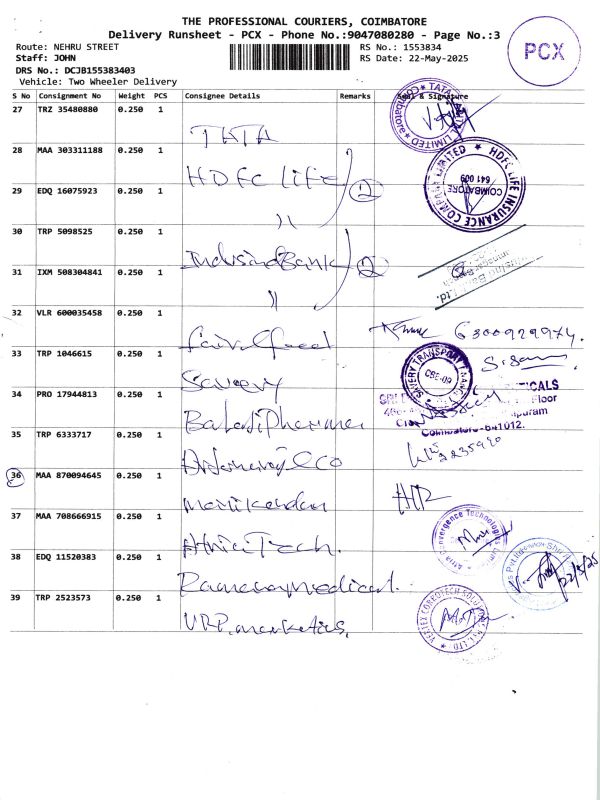 THE PROFESSIONAL COURIERS, COIMBATORE
Delivery Runsheet - PCX - Phone No.:9047080280 - Page No.:3
Route: NEHRU STREET
RS No.: 1553834
Staff: JOHN
RS Date: 22-May-2025
DRS No.: DCJB155383403
Vehicle: Two Wheeler Delivery
PCX
S No Consignment No Weight PCS Consignee Details Remarks Seal & Signature
27 TRZ 35480880 0.250 1 TATA
28 MAA 303311188 0.250 1 HDFC Life
29 EDQ 16075923 0.250 1 〃 2
30 TRP 5098525 0.250 1 IndusindBank
31 IXM 508304841 0.250 1 〃 2
32 VLR 600035458 0.250 1 6300929974.
33 TRP 1046615 0.250 1 Savery
34 PRO 17944813 0.250 1 Balaji Pharma
35 TRP 6333717 0.250 1
36 MAA 870094645 0.250 1 Manikandan
37 MAA 708666915 0.250 1 Atria Tech.
38 EDQ 11520383 0.250 1 Ramenaymedical.
39 TRP 2523573 0.250 1 VRP. marketing,
TATA LIMITED
Coimbatore
HDFC LIFE INSURANCE COMPANY LIMITED
COIMBATORE
641 009
Bank Ltd.
SAVERY TRANSPORT
CBE-09
Floor
Coimbatore-641012.
2235990
Atria Convergence Technologies Limited
VERTEX COREOTECH SOLUTIONS
22/5/25